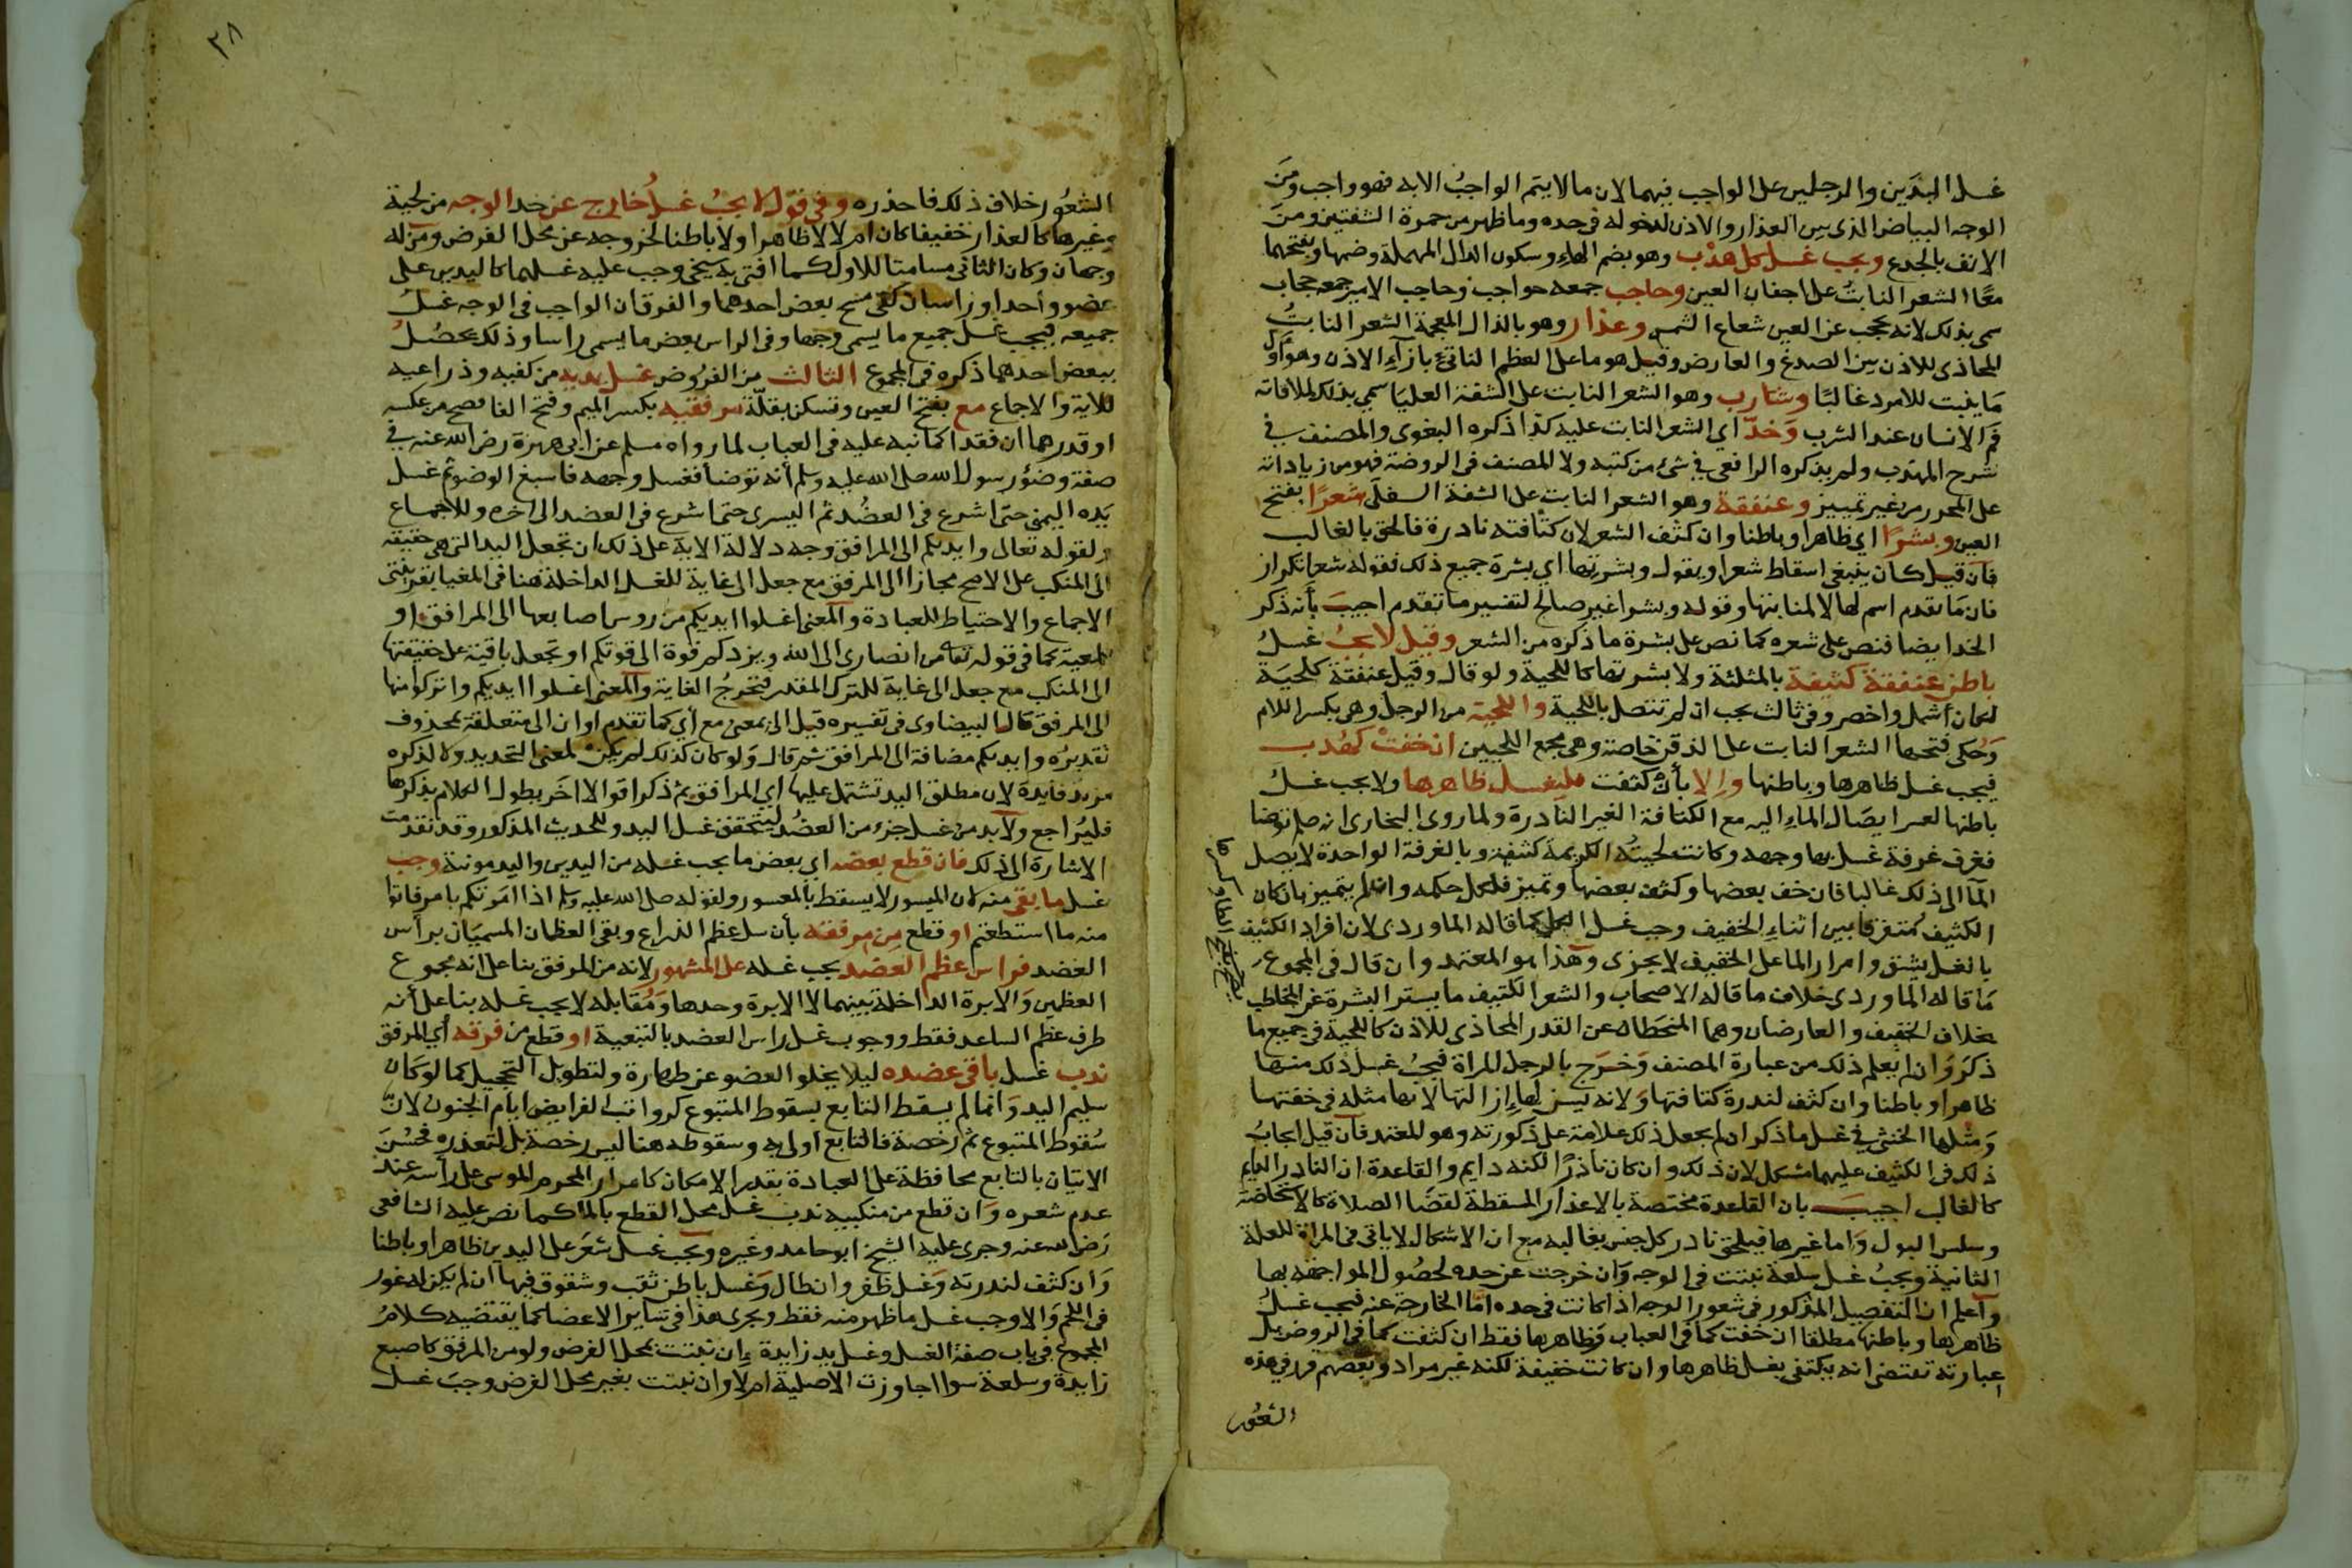 غسل اليدين والرجلين على الواجب فيهما لان ما لا يتم الواجبُ الا به فهو واجب ومنَ
الوجه البياض الذى بين العذار والاذن لدخوله فى حده وما ظهر من حمرة الشفتين ومنَ
الانف بالجدع ويجب غسل كل هدْب وهو بضم الهاء وسكون الدال المهملة وضمها وبفتحهما
معًا الشعر النابتُ على اجفان العين وحاجب جمعه حواجب وحاجب الامير جمعه حجاب
سمى بذلك لانه يحجب عن العين شعاع الشمس وعذار وهو بالذال المعجمة الشعر النابتُ
المحاذى للاذن بين الصدغ والعارض وقيل هو ما على العظم الناتئ بازآء الاذن وهو اول
مَا ينبت للامرد غالبًا وشارب وهو الشعر النابت على الشفة العليَا سمي بذلك لملاقاته
فَم الانسان عند الشرب وَخدّ اى الشعر النابت عليه كذا ذكره البغوى والمصنف فى
شرح المهذب ولم يذكره الرافعى فى شئ من كتبه ولا المصنف فى الروضة فهو من زياداته
على المحرر من غير تمييز وعنفقة وهو الشعر النابت على الشفة السفلَى شعرًا بفتح
العين وبشرًا اى ظاهرا وباطنا وان كثف الشعر لان كثافته نادرة فالحق بالغالب
فان قيل كان ينبغى اسقاط شعرا ويقول وبشرتها اي بشرة جميع ذلك فقوله شعرا تكرار
فان مَا تقدم اسم لها لا لمنابتها وقوله وبشرا غير صالح لتفسير ما تقدم اجيبَ بأنه ذكر
الخد ايضا فنص على شعره كما نص على بشرة ما ذكره من الشعر وقيل لا يجبُ غسلُ
باطن عنفقة كثيفة بالمثلثة ولا بشرتها كاللحية ولو قال وقيل عنفقة كلحيَة
لكان أشمل واخصر وفى ثالث يجب ان لم تتصل باللحية واللحية من الرجل وهى بكسر اللام
وَحُكى فتحها الشعر النابت على الذقن خاصة وهى مجمع اللحيين ان خفتْ كهُدب
فيجب غسل ظاهرها وباطنها والا بأن كثفت فليغسل ظاهرها ولا يجب غسلُ
باطنها لعسر ايصَال الماءِ اليه مع الكثافة الغير النَادرة ولما روى البخارى انه صلم توضا
فغرف غرفة غسل بها وجهه وكانت لحيتُه الكريمَة كثيفة وبالغرفة الواحدة لا يصل
المآ الى ذلك غالبا فان خف بعضها وكثف بعضها وتميز فلكل حكمه وان لم يتميز بان كان
الكثيف مُتفرقا بين اثناءِ الخفيف وجب غسل الكل كما قاله الماوردى لان افراد الكثيف
بالغسل يشق وامرار الما على الخفيف لا يجزى وهَذا هو المعتمد وان قال فى المجموع
مَا قاله الماوردى خلاف ما قاله الاصحاب والشعر الكثيف ما يستر البشرة عن المخاطب
بخلاف الخفيف والعارضان وهما المنحَطان عن القدر المحاذى للاذن كاللحية فى جميع ما
ذكرَ وَان لم يعلم ذلك من عبارة المصنف وَخرَج بالرجل المراة فيجبُ غسل ذلك منها
ظاهرا وباطنا وان كثف لندرة كثافتها وَلانه يسن لهاءِ ازالتها لانها مثله فى خفتها
وَمثلها الخنثى فى غسل ما ذكر ان لم يجعل ذلك علامة على ذكورته وهو المعتمد فان قيل ايجابُ
ذلك فى الكثيف عليهما مشكل لان ذلك وان كان نادرًا لكنه دايم والقاعدة ان النادر الدايم
كالغالب اجيبَ بان القاعدة مختصة بالاعذار المسقطة لقضَا الصلاة كالاستحَاضة
وسلس البول وَاما غيرها فيلحق نادر كل جنس بغالبه مع ان الاشكال لا ياتى فى المراة للعلة
الثانية ويجبُ غسل سلعة نبتت فى الوجه وَان خرجت عن حده لحصُول المواجهة بها
واعلم ان التفصيل المذكور فى شعور الوجه اذا كانت فى حده امَّا الخارجة عنه فيجب غسلُ
ظاهرها وباطنها مطلقا ان خفت كما فى العباب وَظاهرها فقط ان كثفت كما فى الروض بل
عبارته تقتضى انه يكتفى بغسل ظاهرها وان كانت خفيفة لكنه غير مراد وبعضهم قرر فى هذه
الشعُور
٣٨
الشعُور خلاف ذلك فاحذره وفى قول لا يجبُ غسلُ خارج عن حد الوجه من لحية
وغيرها كالعذار خفيفا كان ام لا لا ظاهرا ولا باطنا لخروجه عن محل الفرض ومَن له
وجهان وكان الثانى مسامتا للاول كما افتى به شيخى وجب عليه غسلهما كاليدين على
عضو واحد او راسان كفى مسح بعض احدهما والفرق ان الواجب فى الوجه غسلُ
جميعه فيجب غسل جميع ما يسمى وجها وفى الراس بعض ما يسمى راسا وذلك يحصُلُ
ببعض احدهما ذكره فى المجموع الثالث من الفروض غسل يديه من كفيه وذراعيه
للاية والاجماع مع بفتح العين وتسكن بقلّة مرفقيه بكسر الميم وفتح الفا افصح من عكسه
او قدرهما ان فقدا كما نبه عليه فى العباب لما رواه مسلم عن ابى هريرة رضى الله عنه فى
صفة وضوُ رسول الله صلى الله عليه وسلم أنه توضأ فغسل وجهه فاسبغ الوضو ثم غسل
يَده اليمنى حتى اشرع فى العضُد ثم اليسرى حتى اشرع فى العضد الى اخره وللاجماع
ولقوله تعالى وايديكم الى المرافق وجه دلالة الاية على ذلك ان تجعل اليد التى هى حقيقه
الى المنكب على الاصح مجازا الى المرفق مع جعل الى غاية للغسل الداخلة هنا فى المغيا بقرينتى
الاجماع والاحتياط للعبادة والمعنى اغسلوا ايديكم من روس اصابعها الى المرافق او
للمعية كما فى قوله تعالى من انصارى الى الله ويزدكم قوة الى قوتكم او تجعل باقية على حقيقتها
الى المنكب مع جعل الى غاية للترك المقدر فتخرجُ الغاية والمعنى اغسلوا ايديكم واتركوا منها
الى المرفق قال البيضاوى فى تفسيره قيل الى بمعنى مع أى كما تقدم او ان الى متعلقة بمحذوف
تقديرُه وايديكم مضافة الى المرافق ثم قال وَلو كان كذلك لم يكنْ لمعنى التحديد ولا لذكره
مزيد فايدة لان مطلق اليد تشتمل عليها اي المرافق ثم ذكر اقوالا اخَر يطول الكلام بذكرها
فليُراجع ولَابد من غسل جزء من العضُد ليتحقق غسل اليد وللحديث المذكور وقد تقدمت
الاشارة الى ذلك فان قطع بعضه اي بعض ما يجب غسله من اليدين واليد مونثة وجب
غسل ما بقى منه لان الميسور لا يسقط بالمعسور ولقوله صلى الله عليه وسلم اذا امَرتكم بامر فاتوا
منه ما استطعتم او قطع مِن مرفقه بأن سل عظم الذراع وبقى العظمان المسميَان برأس
العضد فراس عظم العَضد يجب غسله على المشهور لانه من المرفق بنا على انه مجموع
العظمين وَالابرة الداخلة بينهما لا الابرة وحدها وَمُقابله لا يجب غسله بنا على أنه
طرف عظم الساعد فقط ووجوب غسل راس العضد بالتبعية او قطع من فوقه أي المرفق
ندب غسل باقى عضده ليلا يخلو العضو عن طهارة ولتطويل التحجيل كما لو كَان
سليم اليد وَانما لم يسقط التابع بسقوط المتبوع كرواتب الفرايض ايام الجنون لانّ
سُقوط المتبوع ثمَّ رخصة فالتابع اولى به وسقوطه هنا ليس رخصة بل لتعذره فحسُنَ
الاتيَان بالتابع محافظة على العبادة بقدر الامكان كامرار المحرم الموسى على رأسه عند
عدم شعره وَان قطع من منكبيه ندب غسل محل القطع بالما كما نص عليه الشافعى
رَضى الله عنه وجرى عليه الشيخ ابو حامد وغيره ويجب غسل شعَر على اليدين ظاهرا وباطنا
وَان كثف لندرته وَغسل ظفر وان طال وَغسل باطن ثقب وشقوق فيها ان لم يكن له غور
فى اللحم وَالا وجب غسل ما ظهر منه فقط ويجرى هذا فى ساير الاعضا كما يقتضيه كلامُ
المجموع فى باب صفة الغسل وغسل يد زايدة ان نبتت بمحل الفرض ولو من المرفق كاصبع
زايدة وسلعة سوا اجاوزت الاصلية ام لا وان نبتت بغير محل الفرض وجبَ غسل